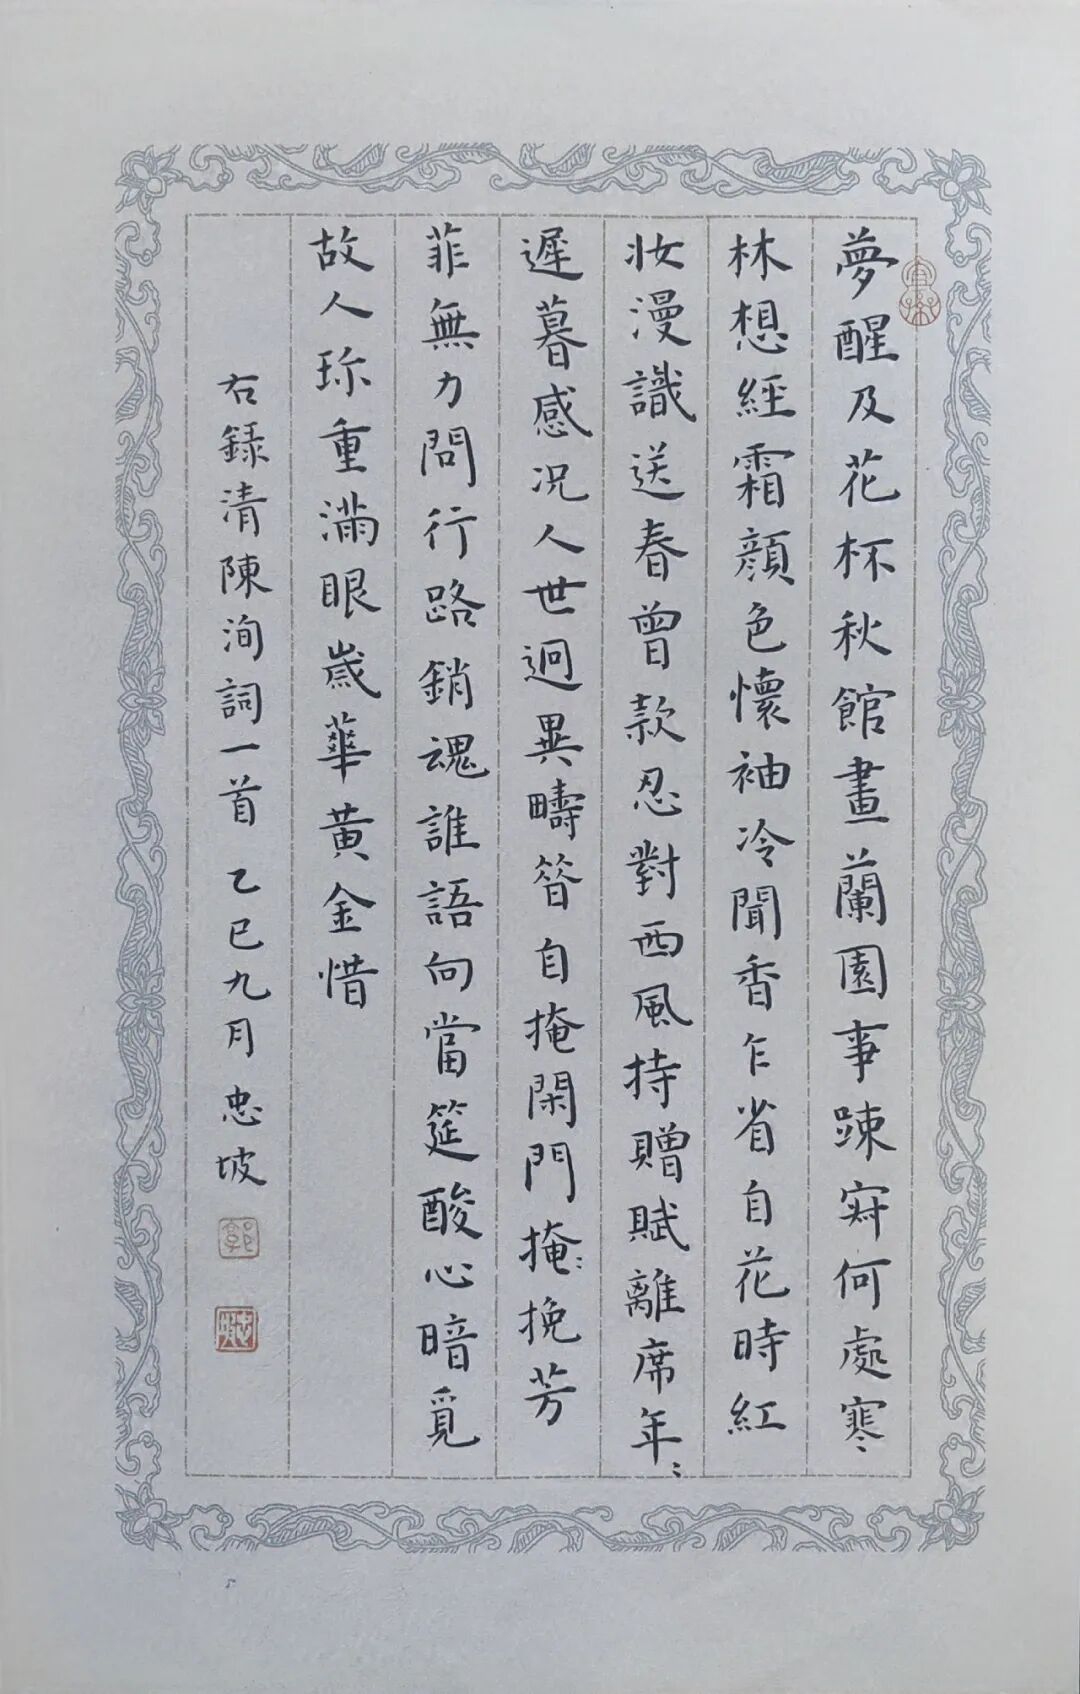 夢醒及花杯秋館畫蘭園事踈寂何處寒
林想經霜顏色懷袖冷聞香乍省自花時紅
妝漫識送春曾款忍對西風持贈賦離席年〻
遲暮感況人世迥異疇昔自掩閑門掩〻挽芳
菲無力問行路銷魂誰語向當筵酸心暗覓
故人珎重滿眼歲華黃金惜
右錄清陳洵詞一首 乙巳九月 忠坡
郭
忠坡